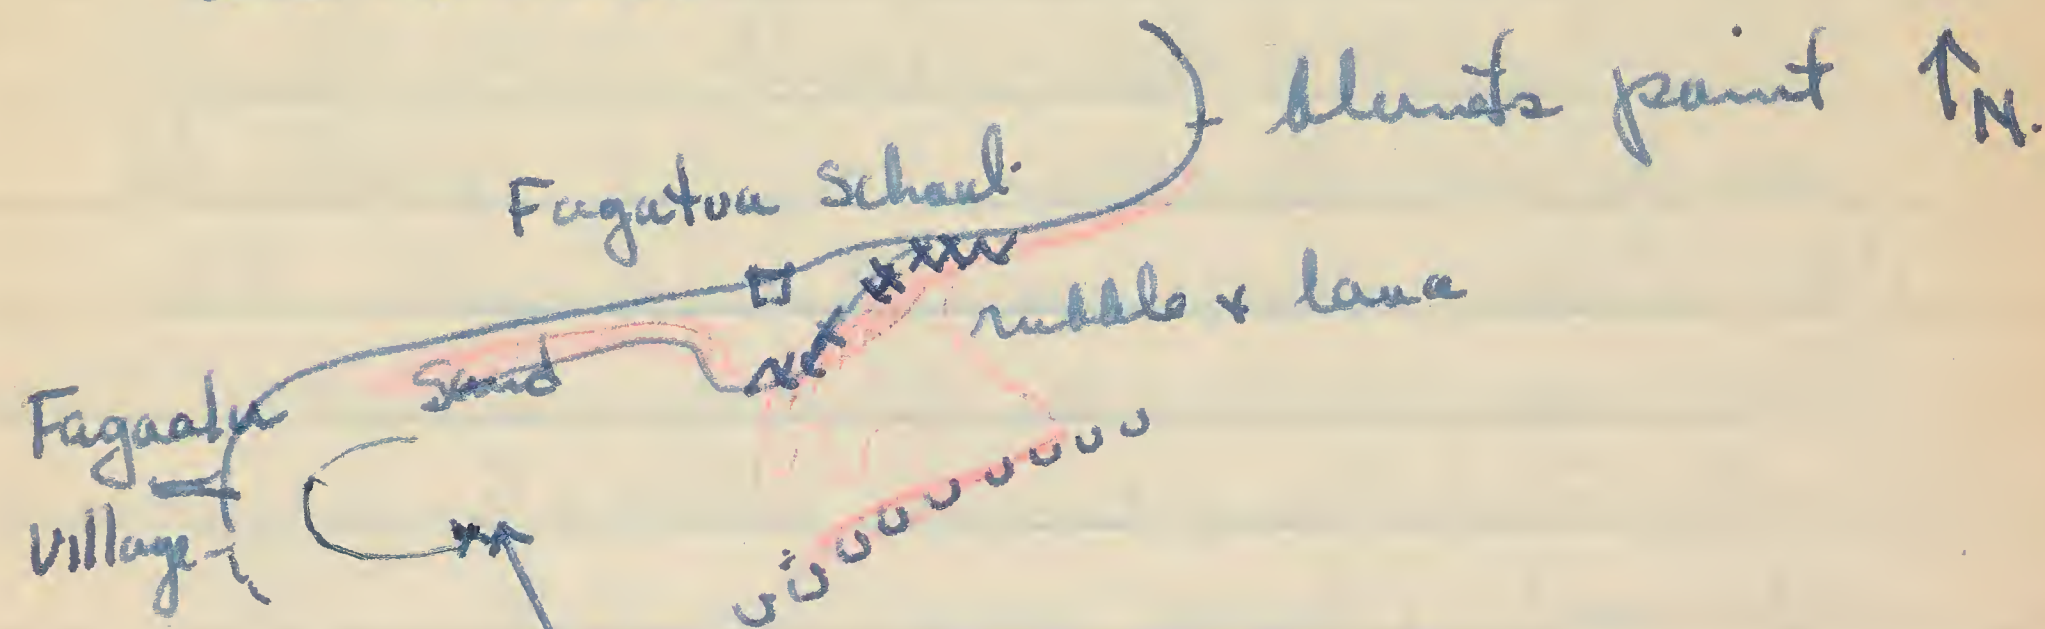 blunts point ↑N.
Fagatua School.
rubble & lava
Sand
Fagaalu
Village